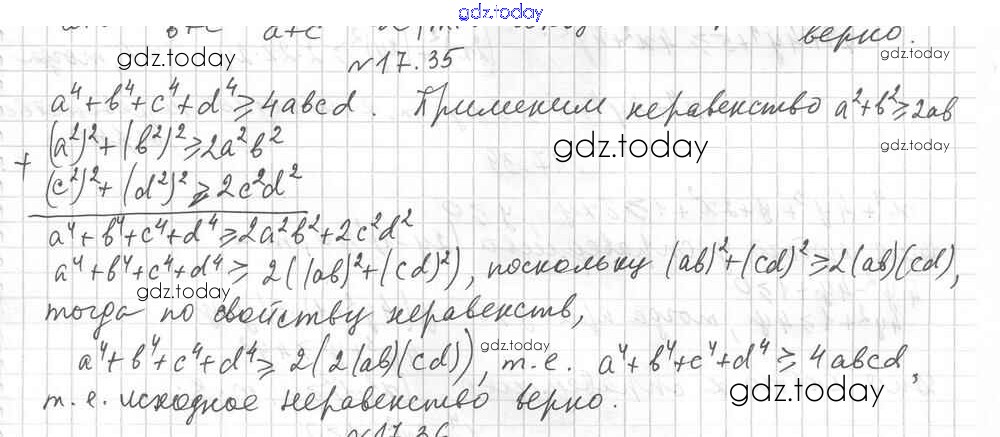 gdz.today
b+c a+c верно.
gdz.today
№17.35
gdz.today
a⁴+b⁴+c⁴+d⁴≥4abcd. Применим неравенство a²+b²≥2ab
+ (a²)²+(b²)²≥2a²b²
gdz.today
gdz.today
(c²)²+(d²)²≥2c²d²
a⁴+b⁴+c⁴+d⁴≥2a²b²+2c²d²
a⁴+b⁴+c⁴+d⁴≥2((ab)²+(cd)²), поскольку (ab)²+(cd)²≥2(ab)(cd),
gdz.today
тогда по свойству неравенств,
gdz.today
a⁴+b⁴+c⁴+d⁴≥2(2(ab)(cd)), т.е. a⁴+b⁴+c⁴+d⁴≥4abcd,
gdz.today
т.е. исходное неравенство верно.
№17.36